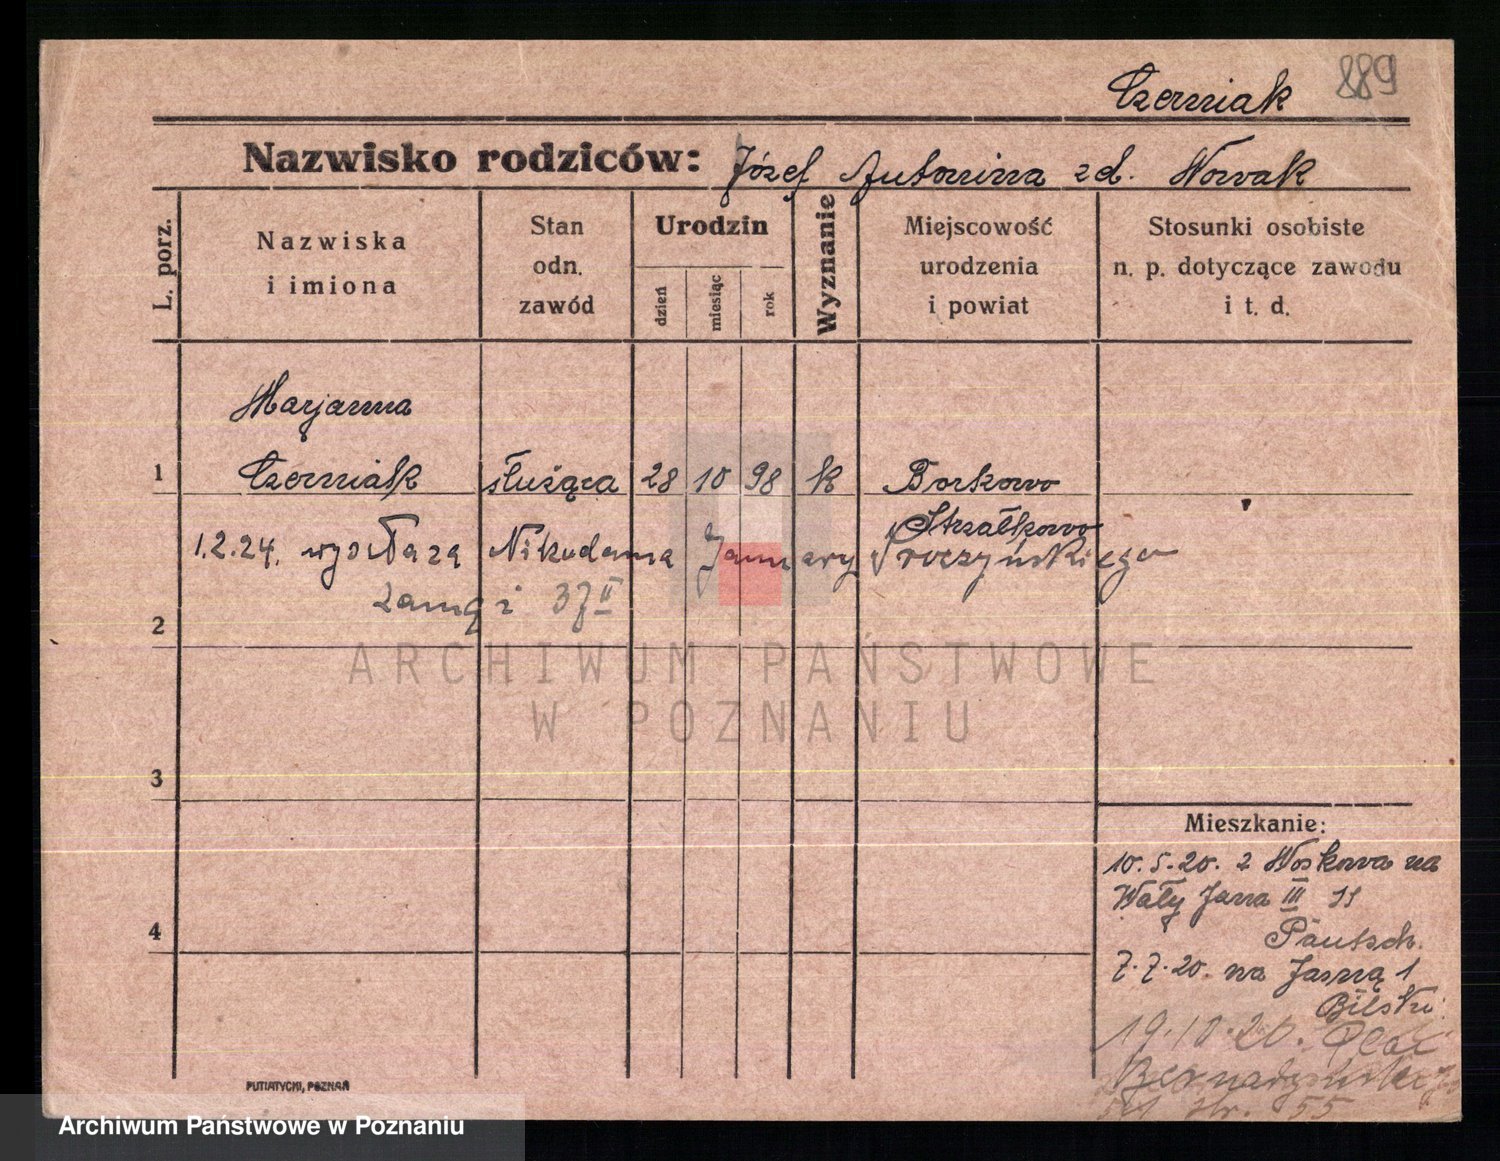 Czerniak 889
Nazwisko rodziców: Józef Antonina zd. Nowak
L. porz.
Nazwiska
i imiona
Stan
odn.
zawód
Urodzin
dzień
miesiąc
rok
Wyznanie
Miejscowość
urodzenia
i powiat
Stosunki osobiste
n. p. dotyczące zawodu
i t. d.
Marjanna
1 Czerniak służąca 28 10 98 k Borkowo
Strzałkowo
1.2.24. wyszła za Nikodema January
zamą i 37 II
2
3
4
Mieszkanie:
10.5.20. z Woskowa na
Wały Jana III 11
Pautsch.
7.7.20. na Jasną 1
Bilski.
19.10.20. Plac
Bernardyński
str. 55
PUTIATYCKI, POZNAŃ
ARCHIWUM PAŃSTWOWE
W POZNANIU
Archiwum Państwowe w Poznaniu